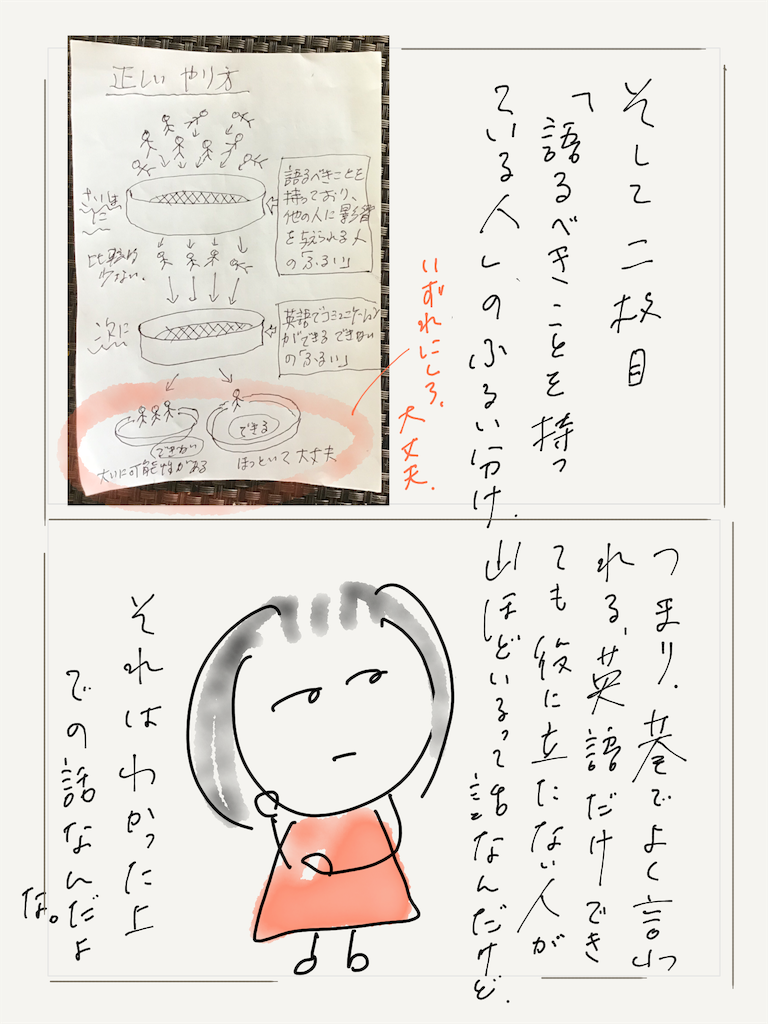 そして二枚目
「語るべきことを持っ
ている人」のふるい分け.
いずれにしろ、大丈夫.
正しいやり方
さいしょに
語るべきことを
持っており、
他の人に影響
を与えられる人
の「ふるい」
比較的
少ない.
次に
英語でコミュニケーション
ができるできない
の「ふるい」
できない
できる
大いに可能性がある
ほっといて大丈夫
つまり.巷でよく言わ
れる、英語だけでき
ても役に立たない人が
山ほどいるって話なんだけど.
それはわかった上
での話なんだよ
な。